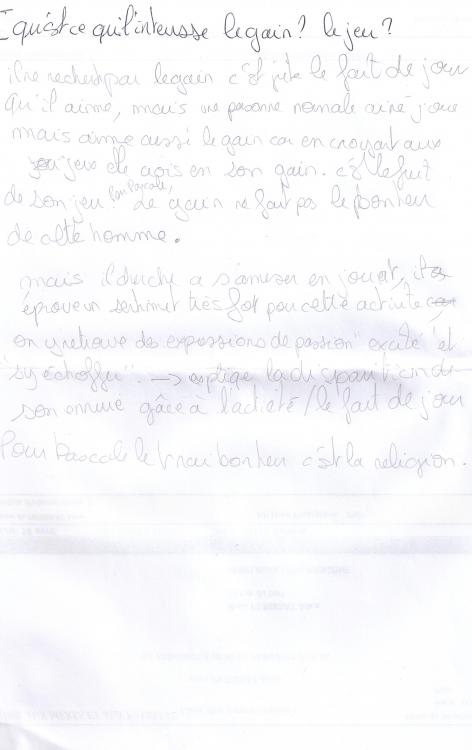 I qu'est ce qu'il interesse le gain? le jeu?
il ne recherche pas le gain c'est juste le fait de jouer
qu'il aime, mais une personne normale aime jouer
mais aime aussi le gain car en croyant aux
jeux elle crois en son gain. c'est le fruit
de son jeu Pour Pascale, le gain ne fait pas le bonheur
de cette homme.
mais il cherche a s'amuser en jouant, il
éprouve un sentiment très fort pour cette activité
on y retrouve des expressions de passion "excité" et
"s'y échauffer". → explique la disparition de
son ennuie gâce à l'activité / le fait de jouer
Pour Pascale le vrai bonheur c'est la religion.